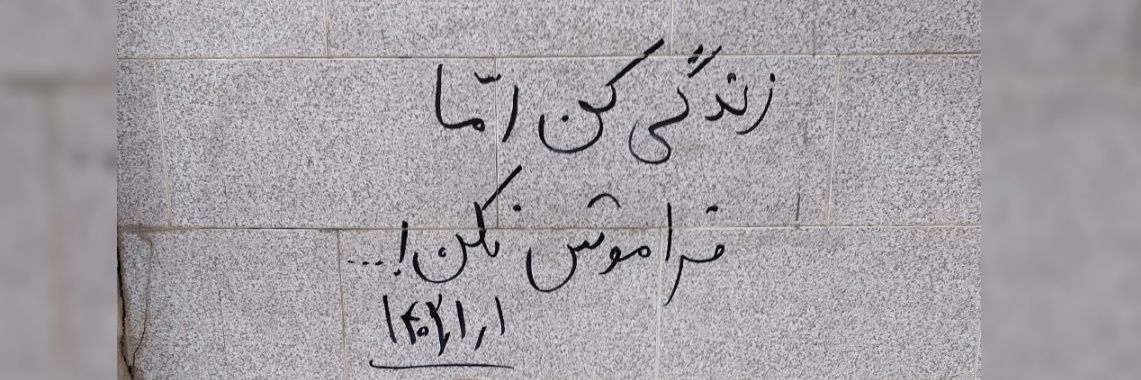 زندگی کن امّا
فراموش نکن!...
۱۴۰۲/۱/۱